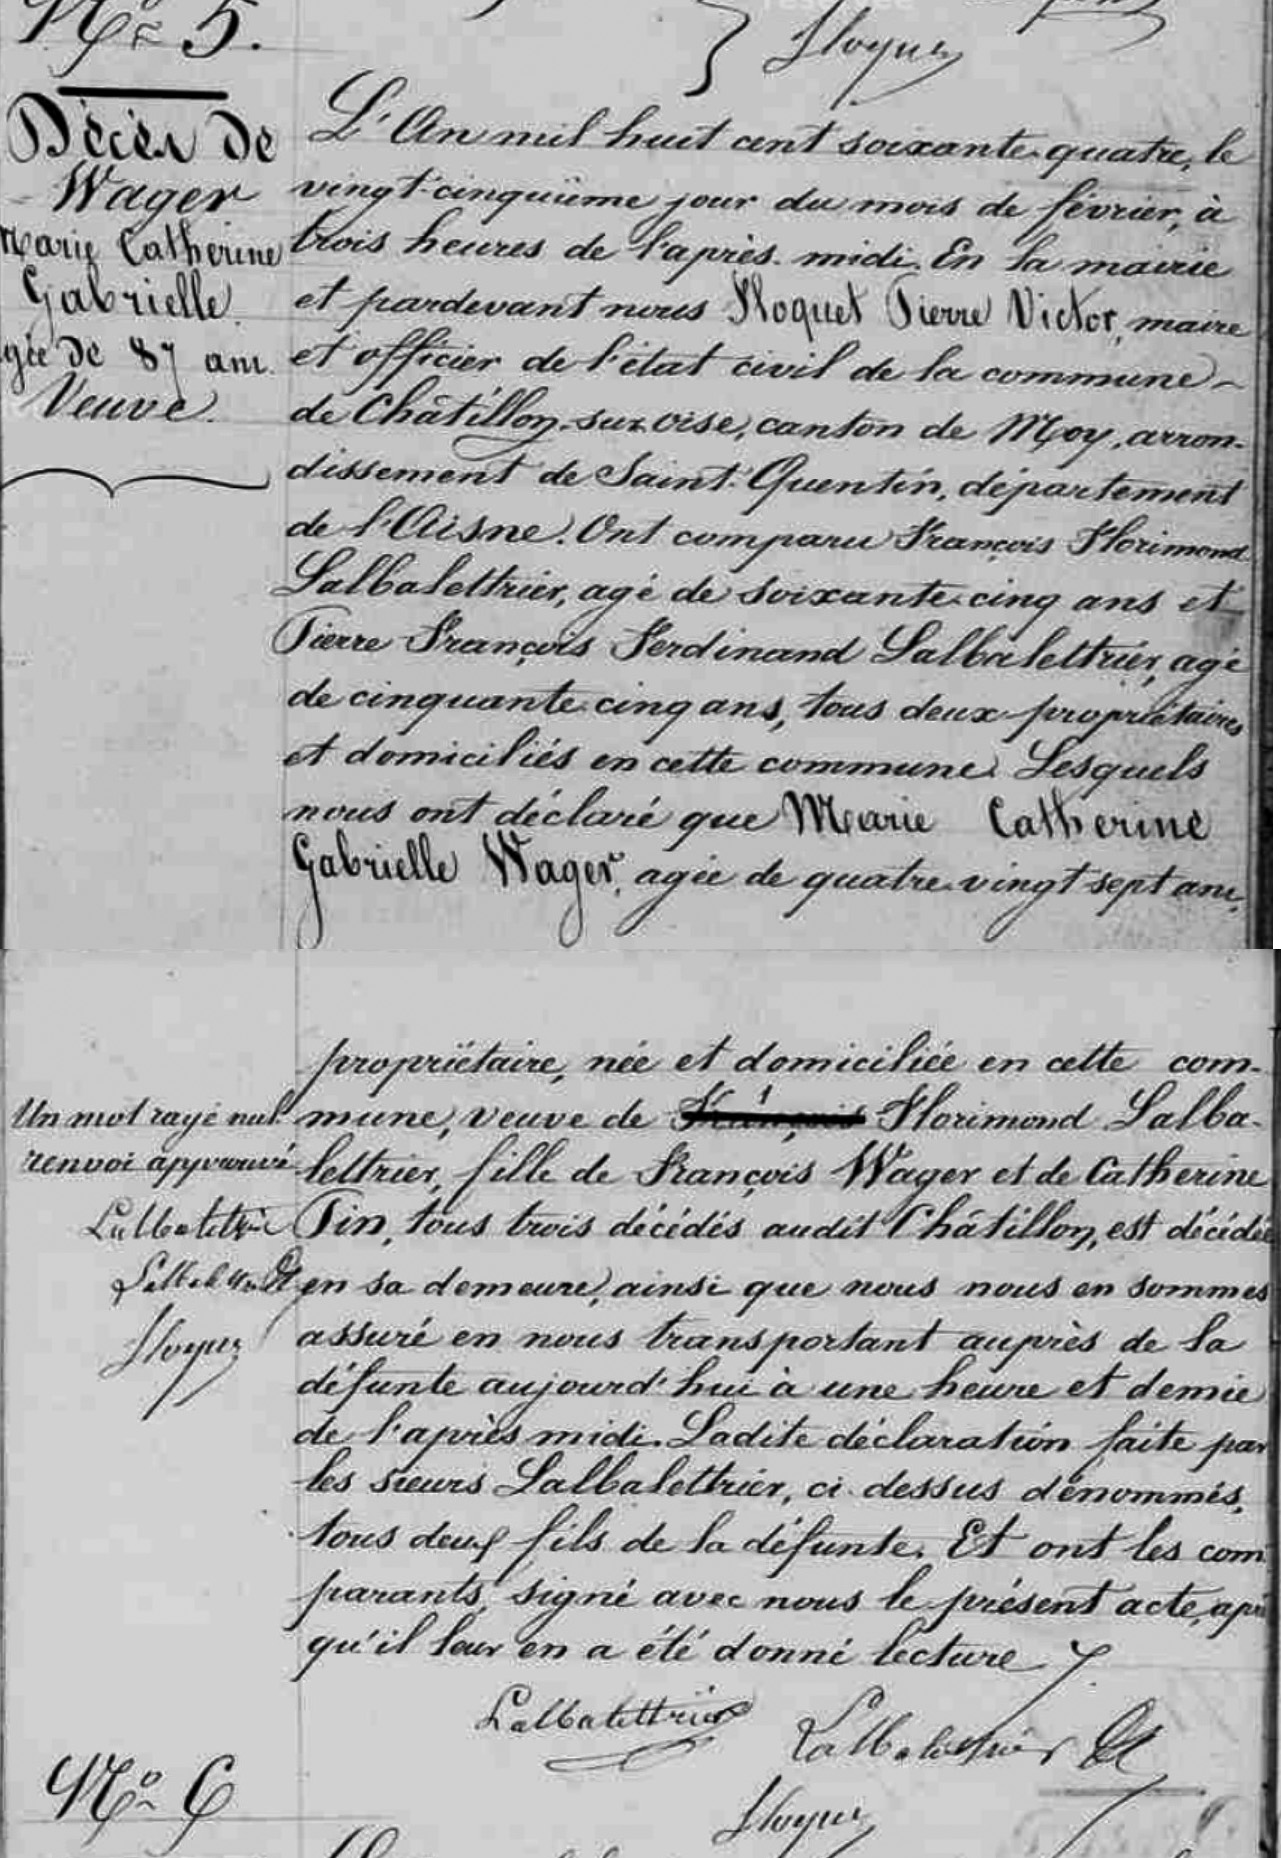 N° 5.
Floquet
Décès de
Wager
Marie Catherine
Gabrielle
gée de 87 ans.
Veuve.
L'An mil huit cent soixante-quatre, le
vingt-cinquième jour du mois de février, à
trois heures de l'après-midi. En la mairie
et pardevant nous Floquet Pierre Victor, maire
et officier de l'état civil de la commune
de Châtillon-sur-oise, canton de Moy, arron-
dissement de Saint-Quentin, département
de l'Aisne. Ont comparu François Florimond
Lalbalettrier, agé de soixante-cinq ans et
Pierre François Ferdinand Lalbalettrier, agé
de cinquante-cinq ans, tous deux propriétaires
et domiciliés en cette commune. Lesquels
nous ont déclaré que Marie Catherine
Gabrielle Wager, agée de quatre-vingt-sept ans,
propriétaire, née et domiciliée en cette com-
mune, veuve de François Florimond Lalba-
lettrier, fille de François Wager et de Catherine
Pin, tous trois décédés audit Châtillon, est décédée
en sa demeure, ainsi que nous nous en sommes
assuré en nous transportant auprès de la
défunte aujourd'hui à une heure et demie
de l'après-midi. Ladite déclaration faite par
les sieurs Lalbalettrier, ci-dessus dénommés,
tous deux fils de la défunte. Et ont les com
parants, signé avec nous le présent acte, apr
qu'il leur en a été donné lecture
Un mot rayé nul
renvoi approuvé
Lalbalettrier
Lalbalettrier
Floquet
Lalbalettrier
Lalbalettrier
Floquet
N° 6